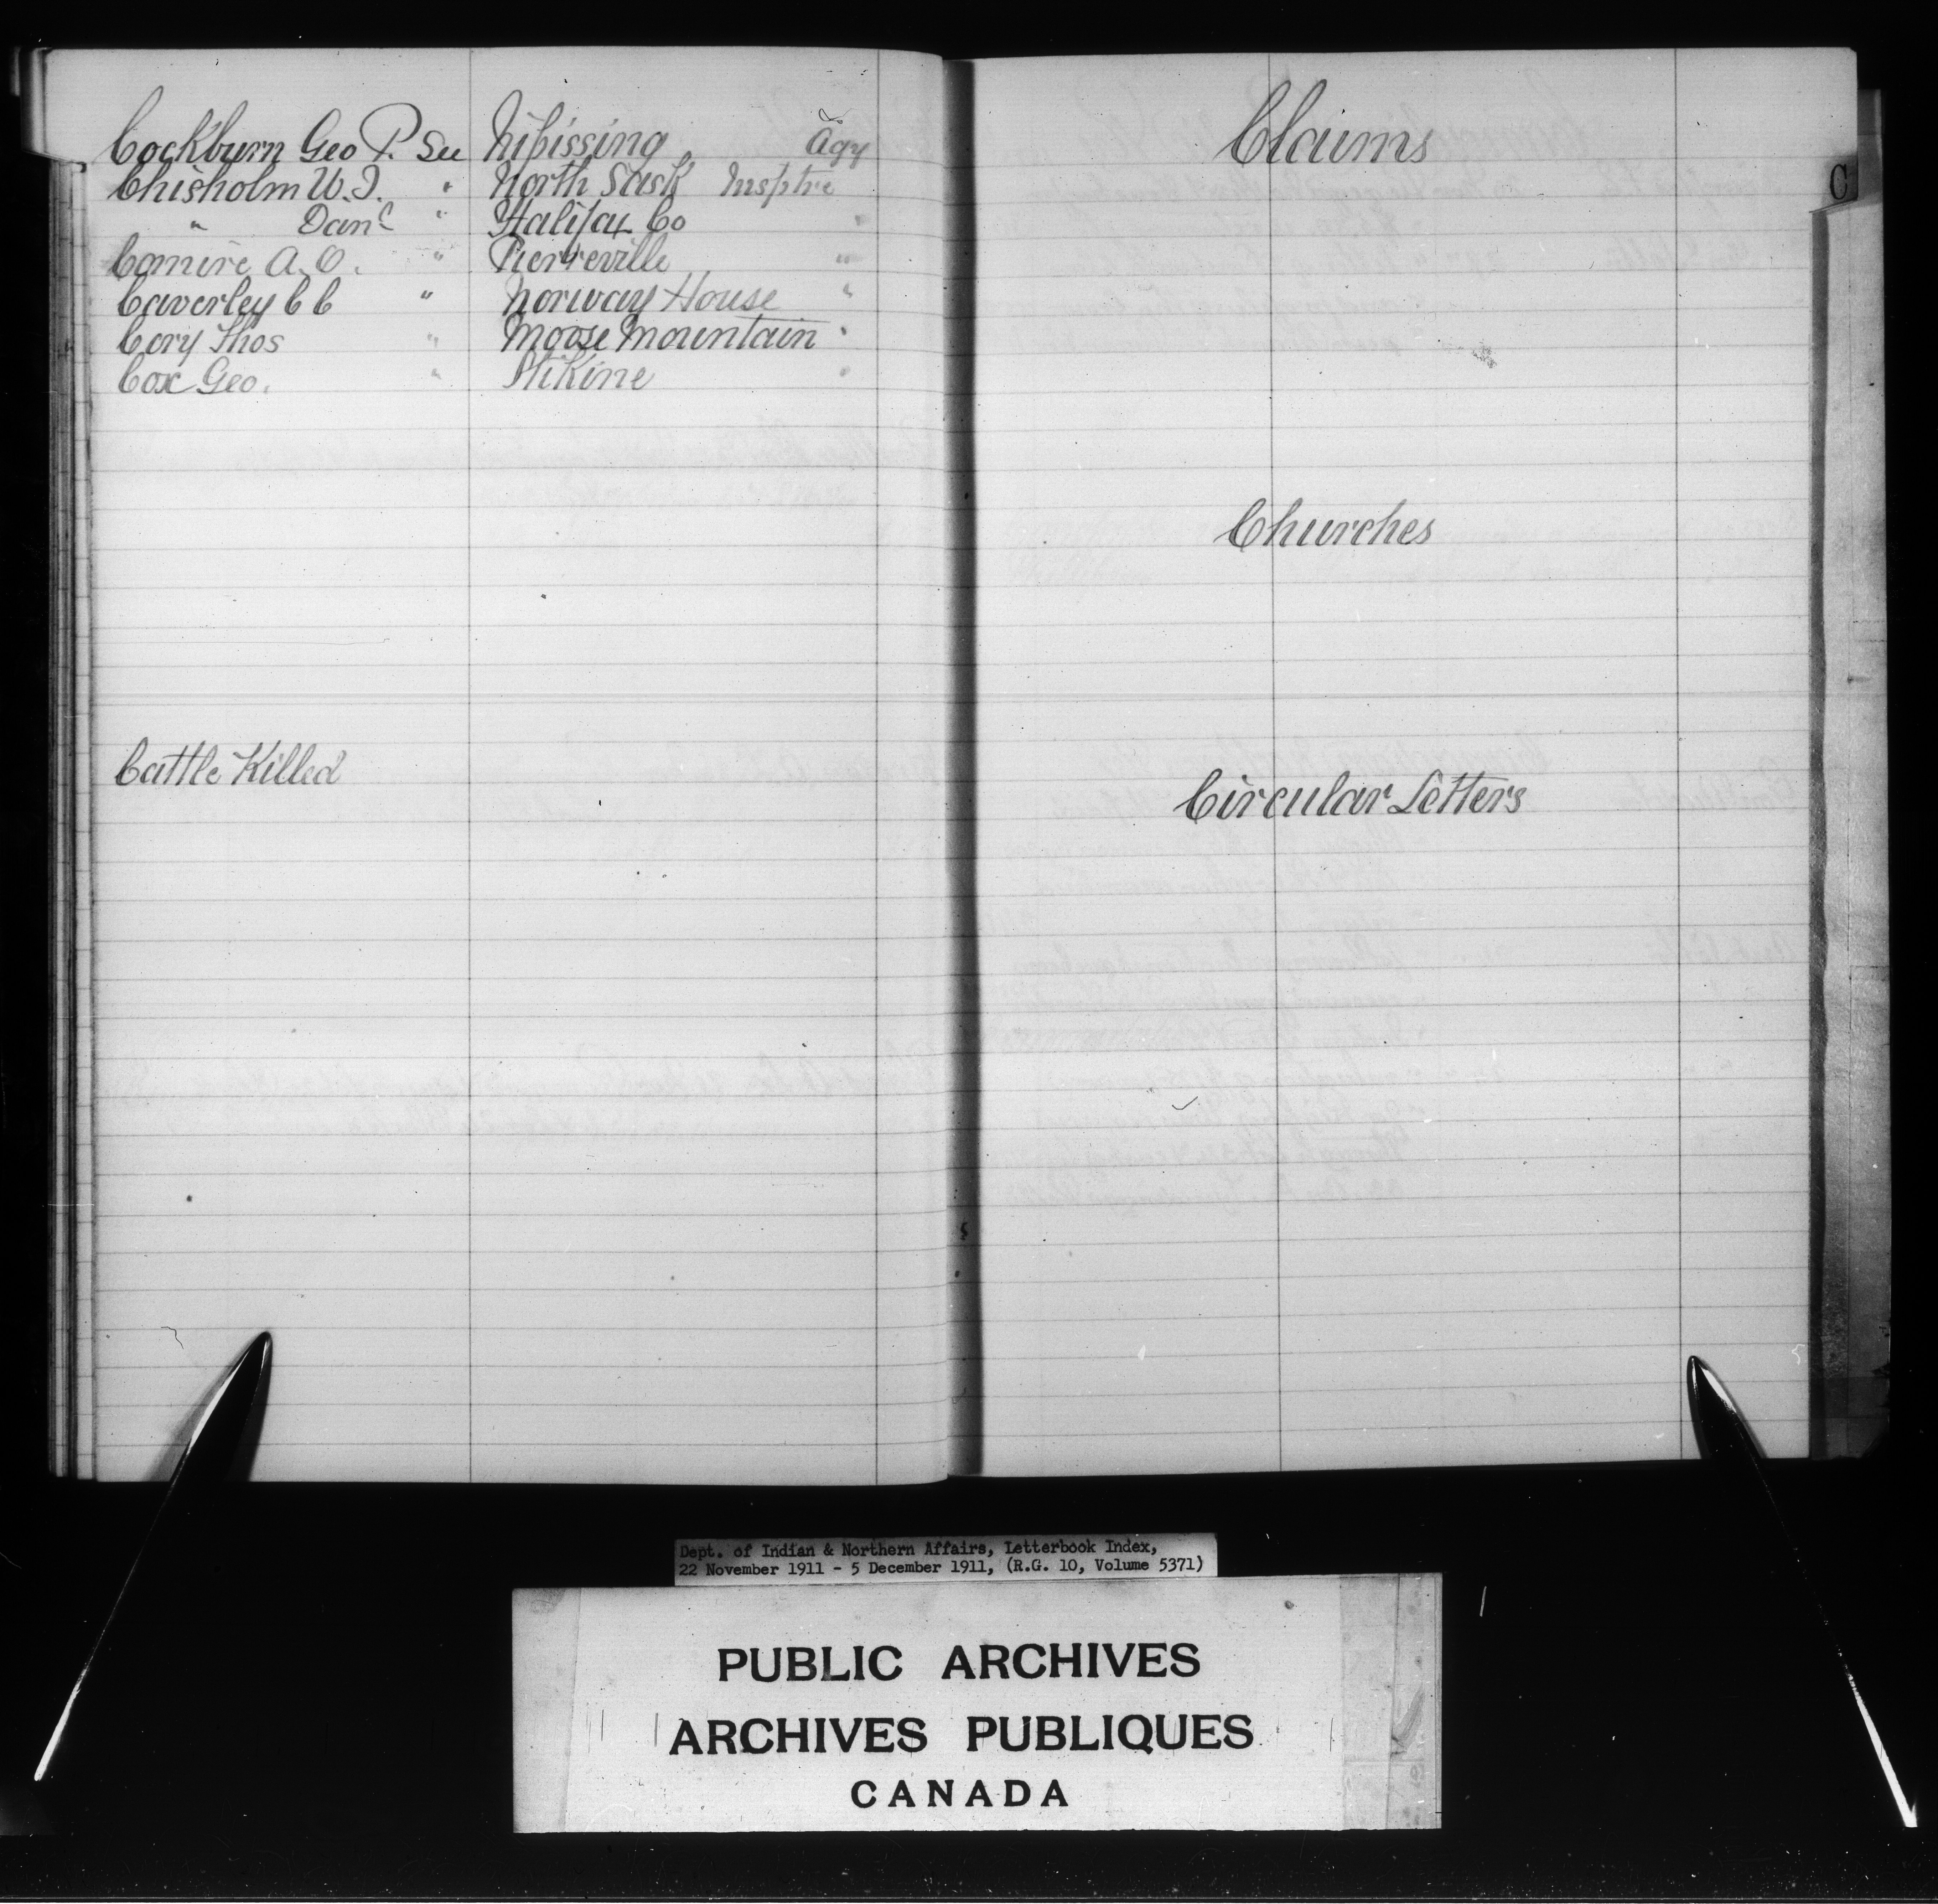 Cockburn Geo P. See Nipissing Agy
Chisholm W.J. " North Sask Insptre
" Danl " Halifax Co "
Comire A.O. " Pierreville "
Caverley C C " Norway House "
Cory Thos " Moose Mountain "
Cox Geo. " Stikine "
Cattle Killed
Claims
C
Churches
Circular Letters
Dept. of Indian & Northern Affairs, Letterbook Index,
22 November 1911 - 5 December 1911, (R.G. 10, Volume 5371)
PUBLIC ARCHIVES
ARCHIVES PUBLIQUES
CANADA